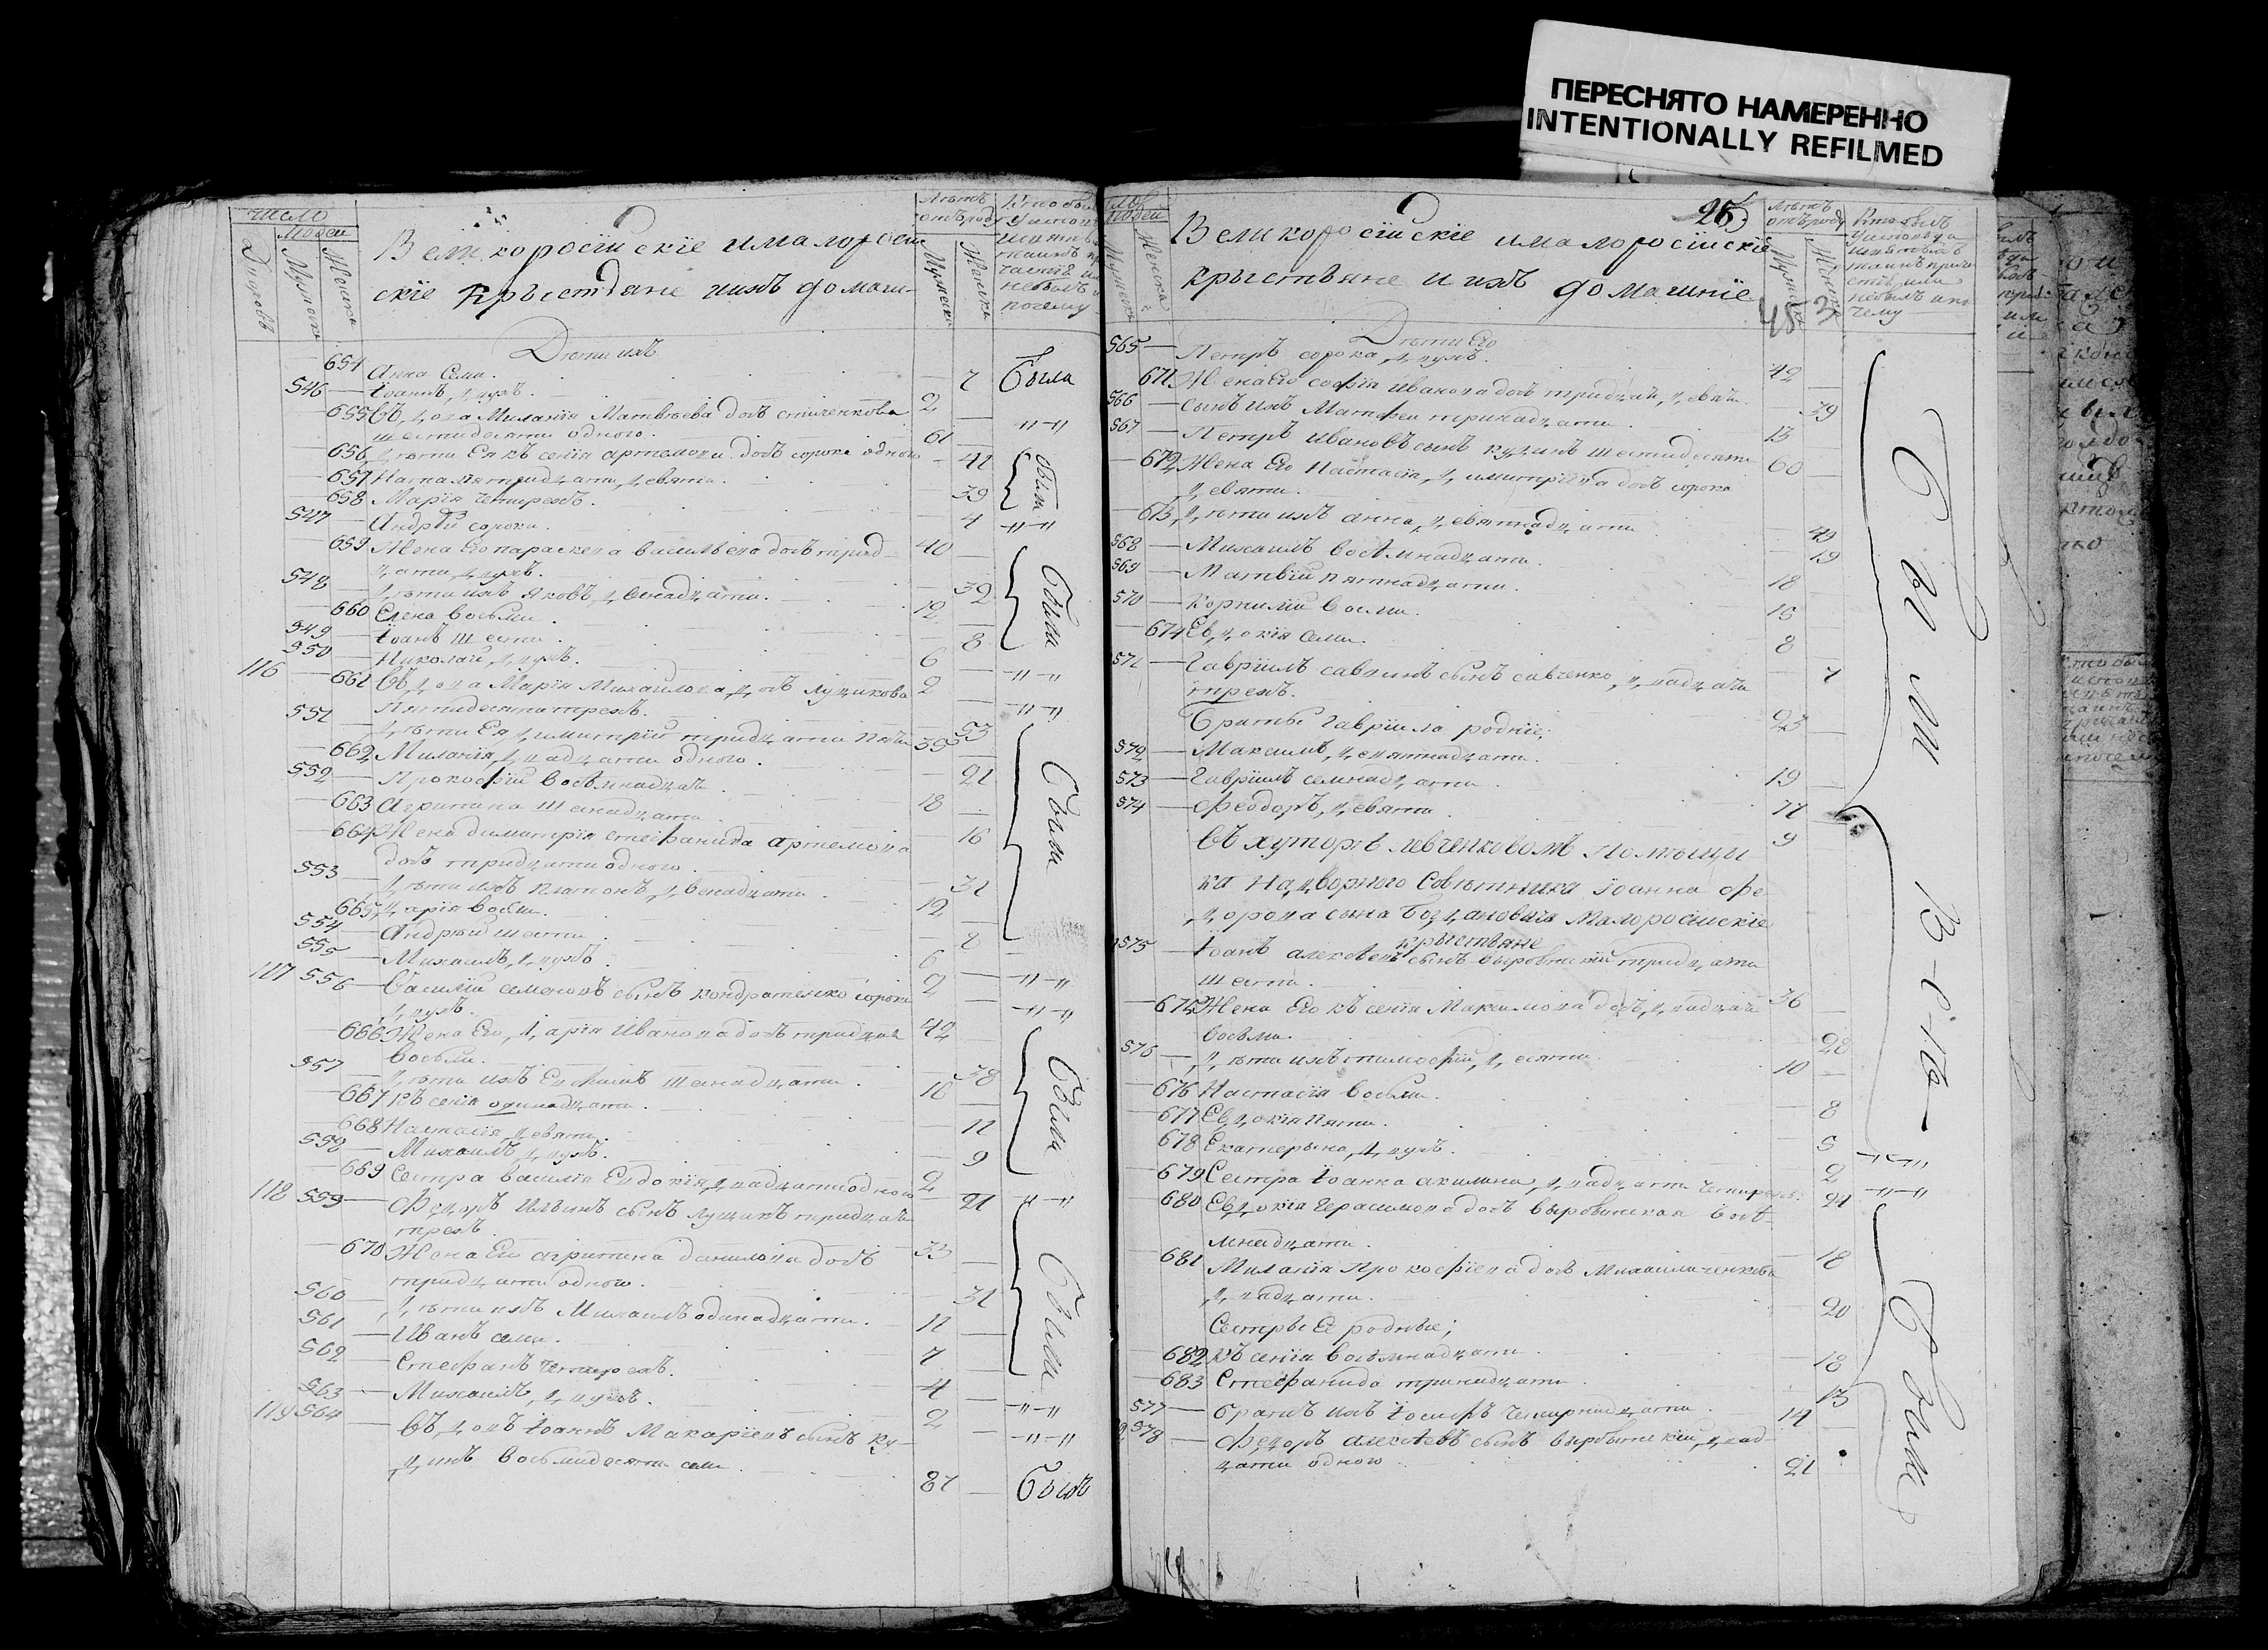 ПЕРЕСНЯТО НАМЕРЕННО
INTENTIONALLY REFILMED
число
людей
Дворовъ
Мужеска
Женска
Великоросійскіе и малоросій
скіе крыстяне и ихъ домаш-
Лѣтъ
отъ роду
Мужеска
Женска
Дѣти ихъ
654 Анна Семи. 7 Была
546 Іоаннъ двухъ. 2
655 Вдова Миланія Матвѣева дочь
шестидесяти одного. 61
656 дѣти Ея Ксенія Артемова дочь сорока одного 41 Были
657 Наталія тридцати девяти. 39
658 Марія четирехъ. 4
547 Андрѣй сорока. 40
659 Жена Его Параскева Васильева дочь трид-
цати двухъ. 32 Были
548 дѣти ихъ Яковъ двенадцати. 12
660 Елена восьми. 8
549 Іоанъ шести. 6
550 Николай двухъ. 2
116 661 Вдова Марія Михайлова дочь Луцикова
Пятидесяти трехъ. 53
551 дѣти Ея Димитрій тридцати пяти 35
662 Миланія двадцати одного. 21 Были
552 Прокофій восѣмнадцать. 18
663 Агрипина шеснадцати 16
664 Жена Димитрія Стефанида Артемова
дочь тридцати одного. 31
553 дѣти ихъ Платонъ двенадцати. 12
665 Дарія восьми. 8
554 Андрѣй шести. 6
555 Михаилъ двухъ. 2
117 556 Василій Семеновъ сынъ Кондратенко сорока
двухъ. 42
666 Жена Его Дарія Иванова дочь тридцати
восьми. 38 Были
557 дѣти ихъ Евфимъ шеснадцати. 16
667 Ксенія одинадцати. 11
668 Настасія девяти. 9
558 Михаилъ двухъ. 2
669 Сестра Василія Евдокія двадцати одного 21
118 559 Федоръ Ильинъ сынъ Луцикъ тридцати
трехъ. 33
670 Жена Его Агрипина Данилова дочь
тридцати одного. 31 Были
560 дѣти ихъ Михаилъ одинадцати. 11
561 Иванъ семи. 7
562 Стефанъ четирехъ. 4
563 Михаилъ двухъ. 2
119 564 Вдовъ Іоаннъ Макаріевъ сынъ Ку-
цинъ восьмидесяти семи. 87 Былъ
Великоросійскіе и малоросійскіе
крыстьяне и ихъ домашніе
Лѣтъ
отъ роду
Мужеска
Женска
Дѣти Его
565 Петръ сорока двухъ. 42
671 Жена Его Софія Иванова дочь тридцати девяти. 39
566 сынъ ихъ Матфей тринадцати. 13
567 Петръ Ивановъ сынъ Куцинъ шестидесяти 60
672 Жена Его Настасія Димитріева дочь сорока
девяти. 49
673 дѣти ихъ Анна девятнадцати 19
568 Михаилъ восѣмнадцати. 18
569 Матвій пятнадцати. 15
570 Корнилій восми. 8
674 Евдокія семи. 7
571 Гавріилъ Саввинъ сынъ Савченко двадцати
трехъ. 23
Братья Гавріила родніе;
572 Максимъ девятнадцати. 19
573 Гавріилъ семнадцати. 17
574 Феодоръ девяти. 9
Въ хуторѣ Левченковомъ Помѣщи
ка Надворного Совѣтника Іоанна Фе
дорова сына Богдановича Малоросійскіе
крыстьяне
575 Іоанъ Алексѣевъ сынъ Выровинскій тридцати
шести. 36
675 Жена Его Ксенія Максимова дочь двадцати
восьми. 28
576 дѣти ихъ Тимофій десяти. 10
676 Настасія восьми. 8
677 Евдокія пяти. 5
678 Екатерына двухъ. 2
679 Сестра Іоанна Акилина двадцати четирехъ. 24
680 Евдокія Герасимова дочь Выровинская восѣ-
мнадцати. 18
681 Миланія Прокофіева дочь
двадцати. 20
Сестры Ее родные;
682 Ксенія восѣмнадцати. 18
683 Стефанида тринадцати. 13
577 братъ ихъ Іосифъ четирнадцати. 14
578 Федоръ Алексѣевъ сынъ Выровинскій двад-
цати одного 21
Были
Всѣ
Были